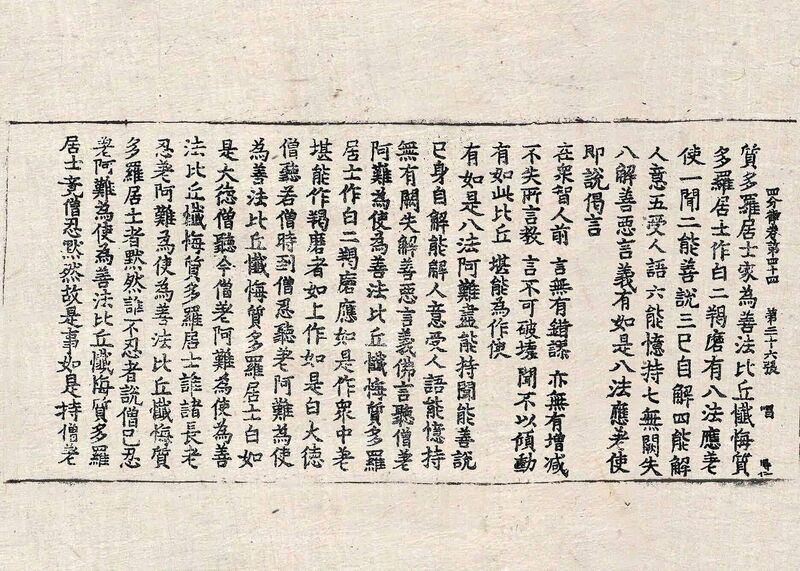 質多羅居士家為善法比丘懺悔質
四分律卷第四十四　第三十六張　唱
多羅居士作白二羯磨有八法應差
使一聞二能善說三已自解四能解
人意五受人語六能憶持七無闕失
八解善惡言義有如是八法應差使
即說偈言
在眾智人前　言無有錯謬　亦無有增減
不失所言教　言不可破壞　聞不以傾動
有如此比丘　堪能為作使
有如是八法阿難盡能持聞能善說
已身自解能解人意受人語能憶持
無有闕失解善惡言義佛言聽僧差
阿難為使為善法比丘懺悔質多羅
居士作白二羯磨應如是作眾中差
堪能作羯磨者如上作如是白大德
僧聽若僧時到僧忍聽差阿難為使
為善法比丘懺悔質多羅居士白如
是大德僧聽今僧差阿難為使為善
法比丘懺悔質多羅居士誰諸長老
忍差阿難為使為善法比丘懺悔質
多羅居士者默然誰不忍者說僧已忍
差阿難為使為善法比丘懺悔質多羅
居士竟僧忍默然故是事如是持僧差